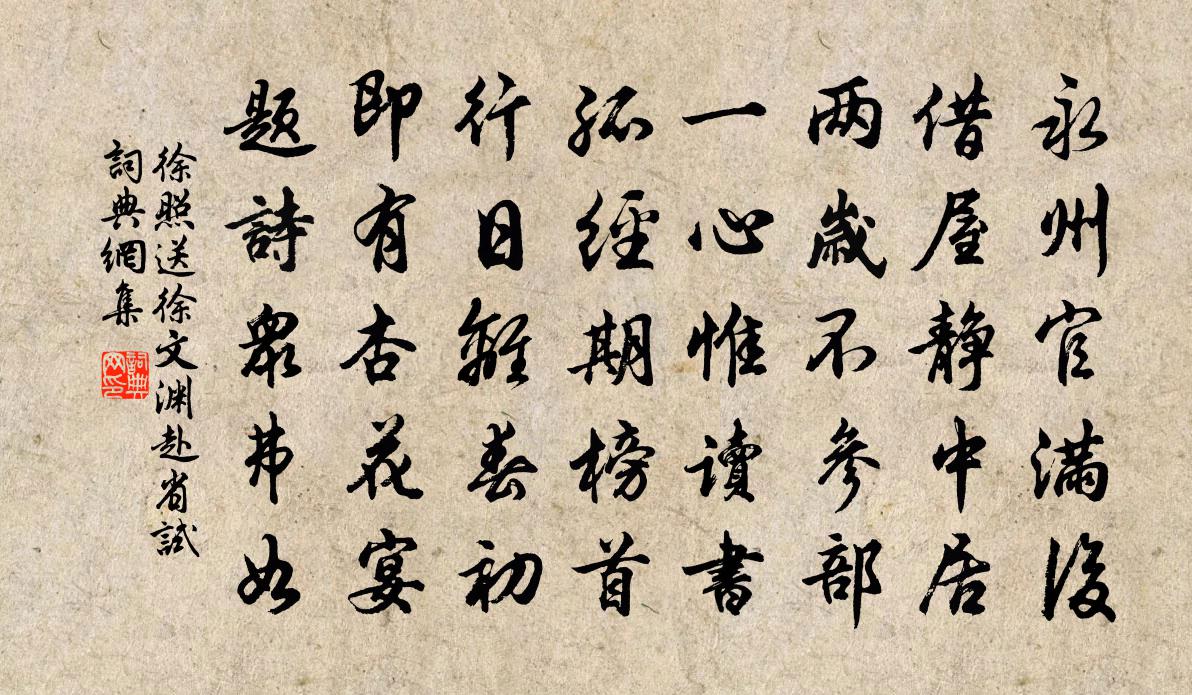 永州官滿後
借屋靜中居
两歲不參部
一心惟讀書
孤經期榜首
行日離春初
即有杏花宴
題詩衆弗如
徐照送徐文渊赴省試
詞典網集
詞典网印